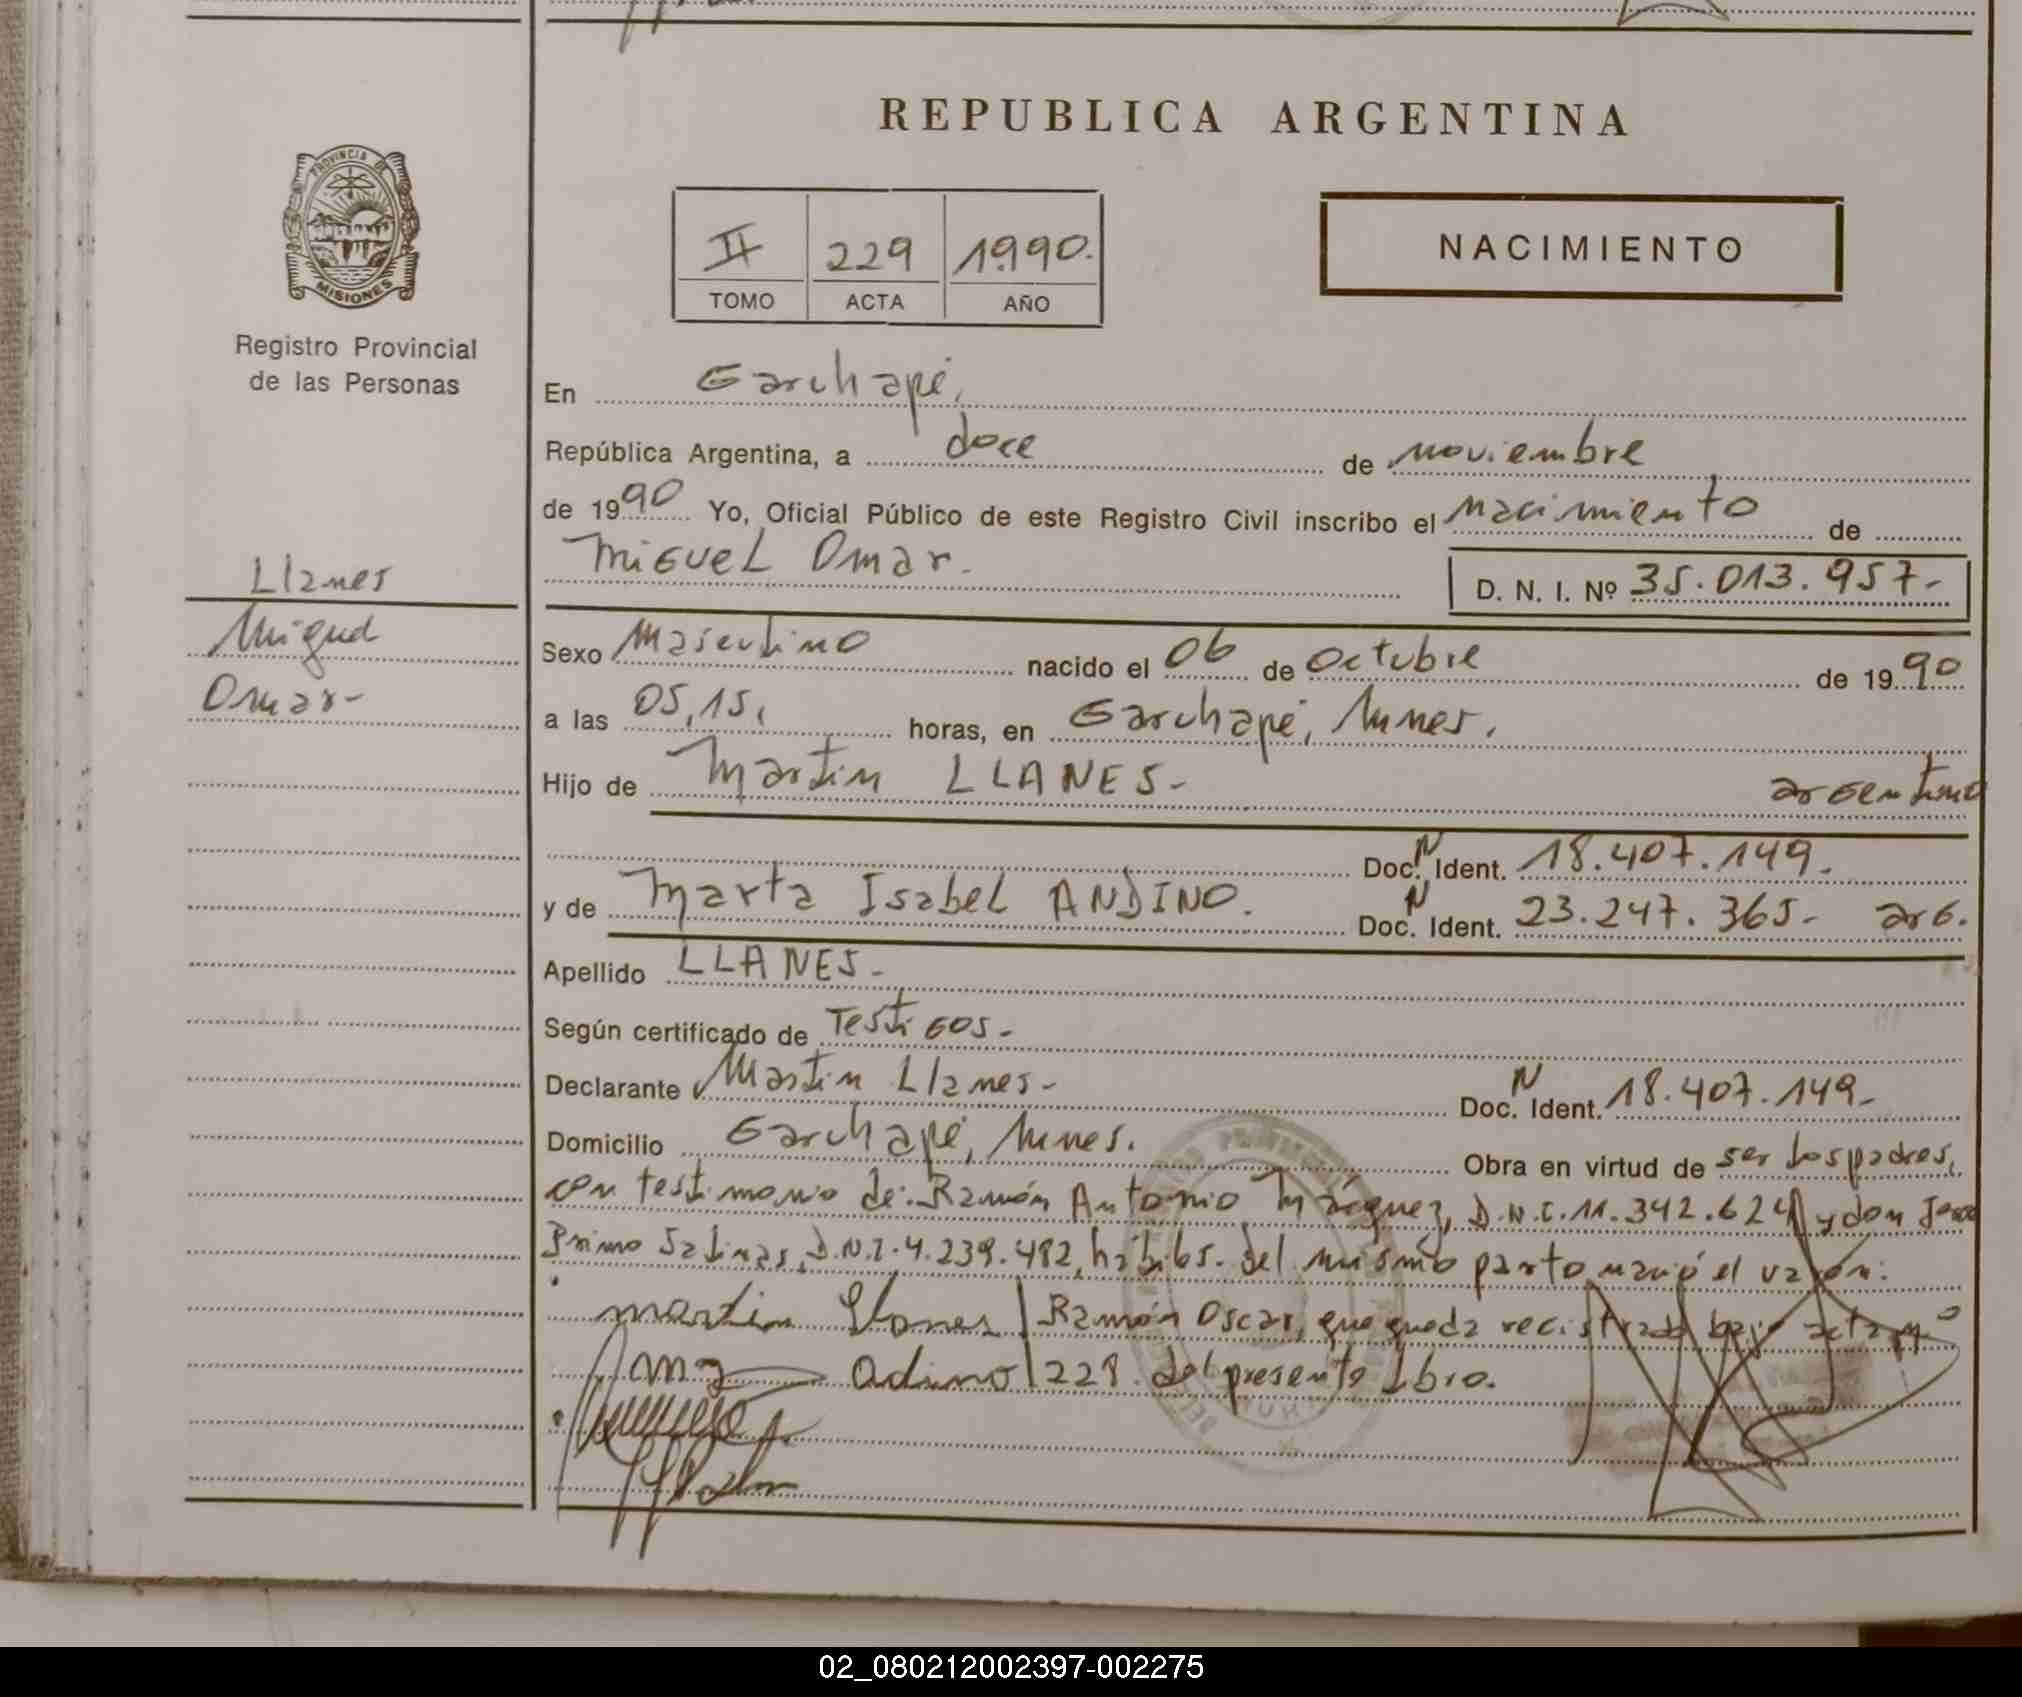 REPUBLICA ARGENTINA
PROVINCIA DE
MISIONES
Registro Provincial
de las Personas
II 229 1990.
TOMO ACTA AÑO
NACIMIENTO
En Garuhapé,
República Argentina, a doce de noviembre
de 1990 Yo, Oficial Público de este Registro Civil inscribo el nacimiento de
Miguel Omar.
D. N. I. Nº 35.013.957-
Llanes
Miguel
Omar-
Sexo Masculino nacido el 06 de Octubre de 1990
a las 05,15, horas, en Garuhapé, Mnes.
Hijo de Martin LLANES- argentino
Doc. N Ident. 18.407.149.
y de Marta Isabel ANDINO. Doc. N Ident. 23.247.365- arg.
Apellido LLANES-
Según certificado de Testigos-
Declarante Martin Llanes- Doc. N Ident. 18.407.149-
Domicilio Garuhapé, Mnes. Obra en virtud de ser los padres,
con testimonio de: Ramón Antonio Márquez, D.N.I. 11.342.624 y don José
Primo Salinas, D.N.I. 4.239.482, hábiles. del mismo parto nació el varón:
martin Llanes Ramón Oscar, que queda registrado bajo acta nº
Andino 228. del presente libro.
02_080212002397-002275